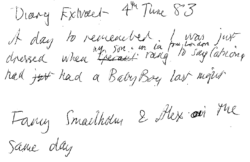 Diary Extract 4th June 83
A day to remember. I was just
my son in in from London
dressed when rang to say Catriona
had just had a Baby Boy last night
Fancy Smailholm & Alex on the
same day